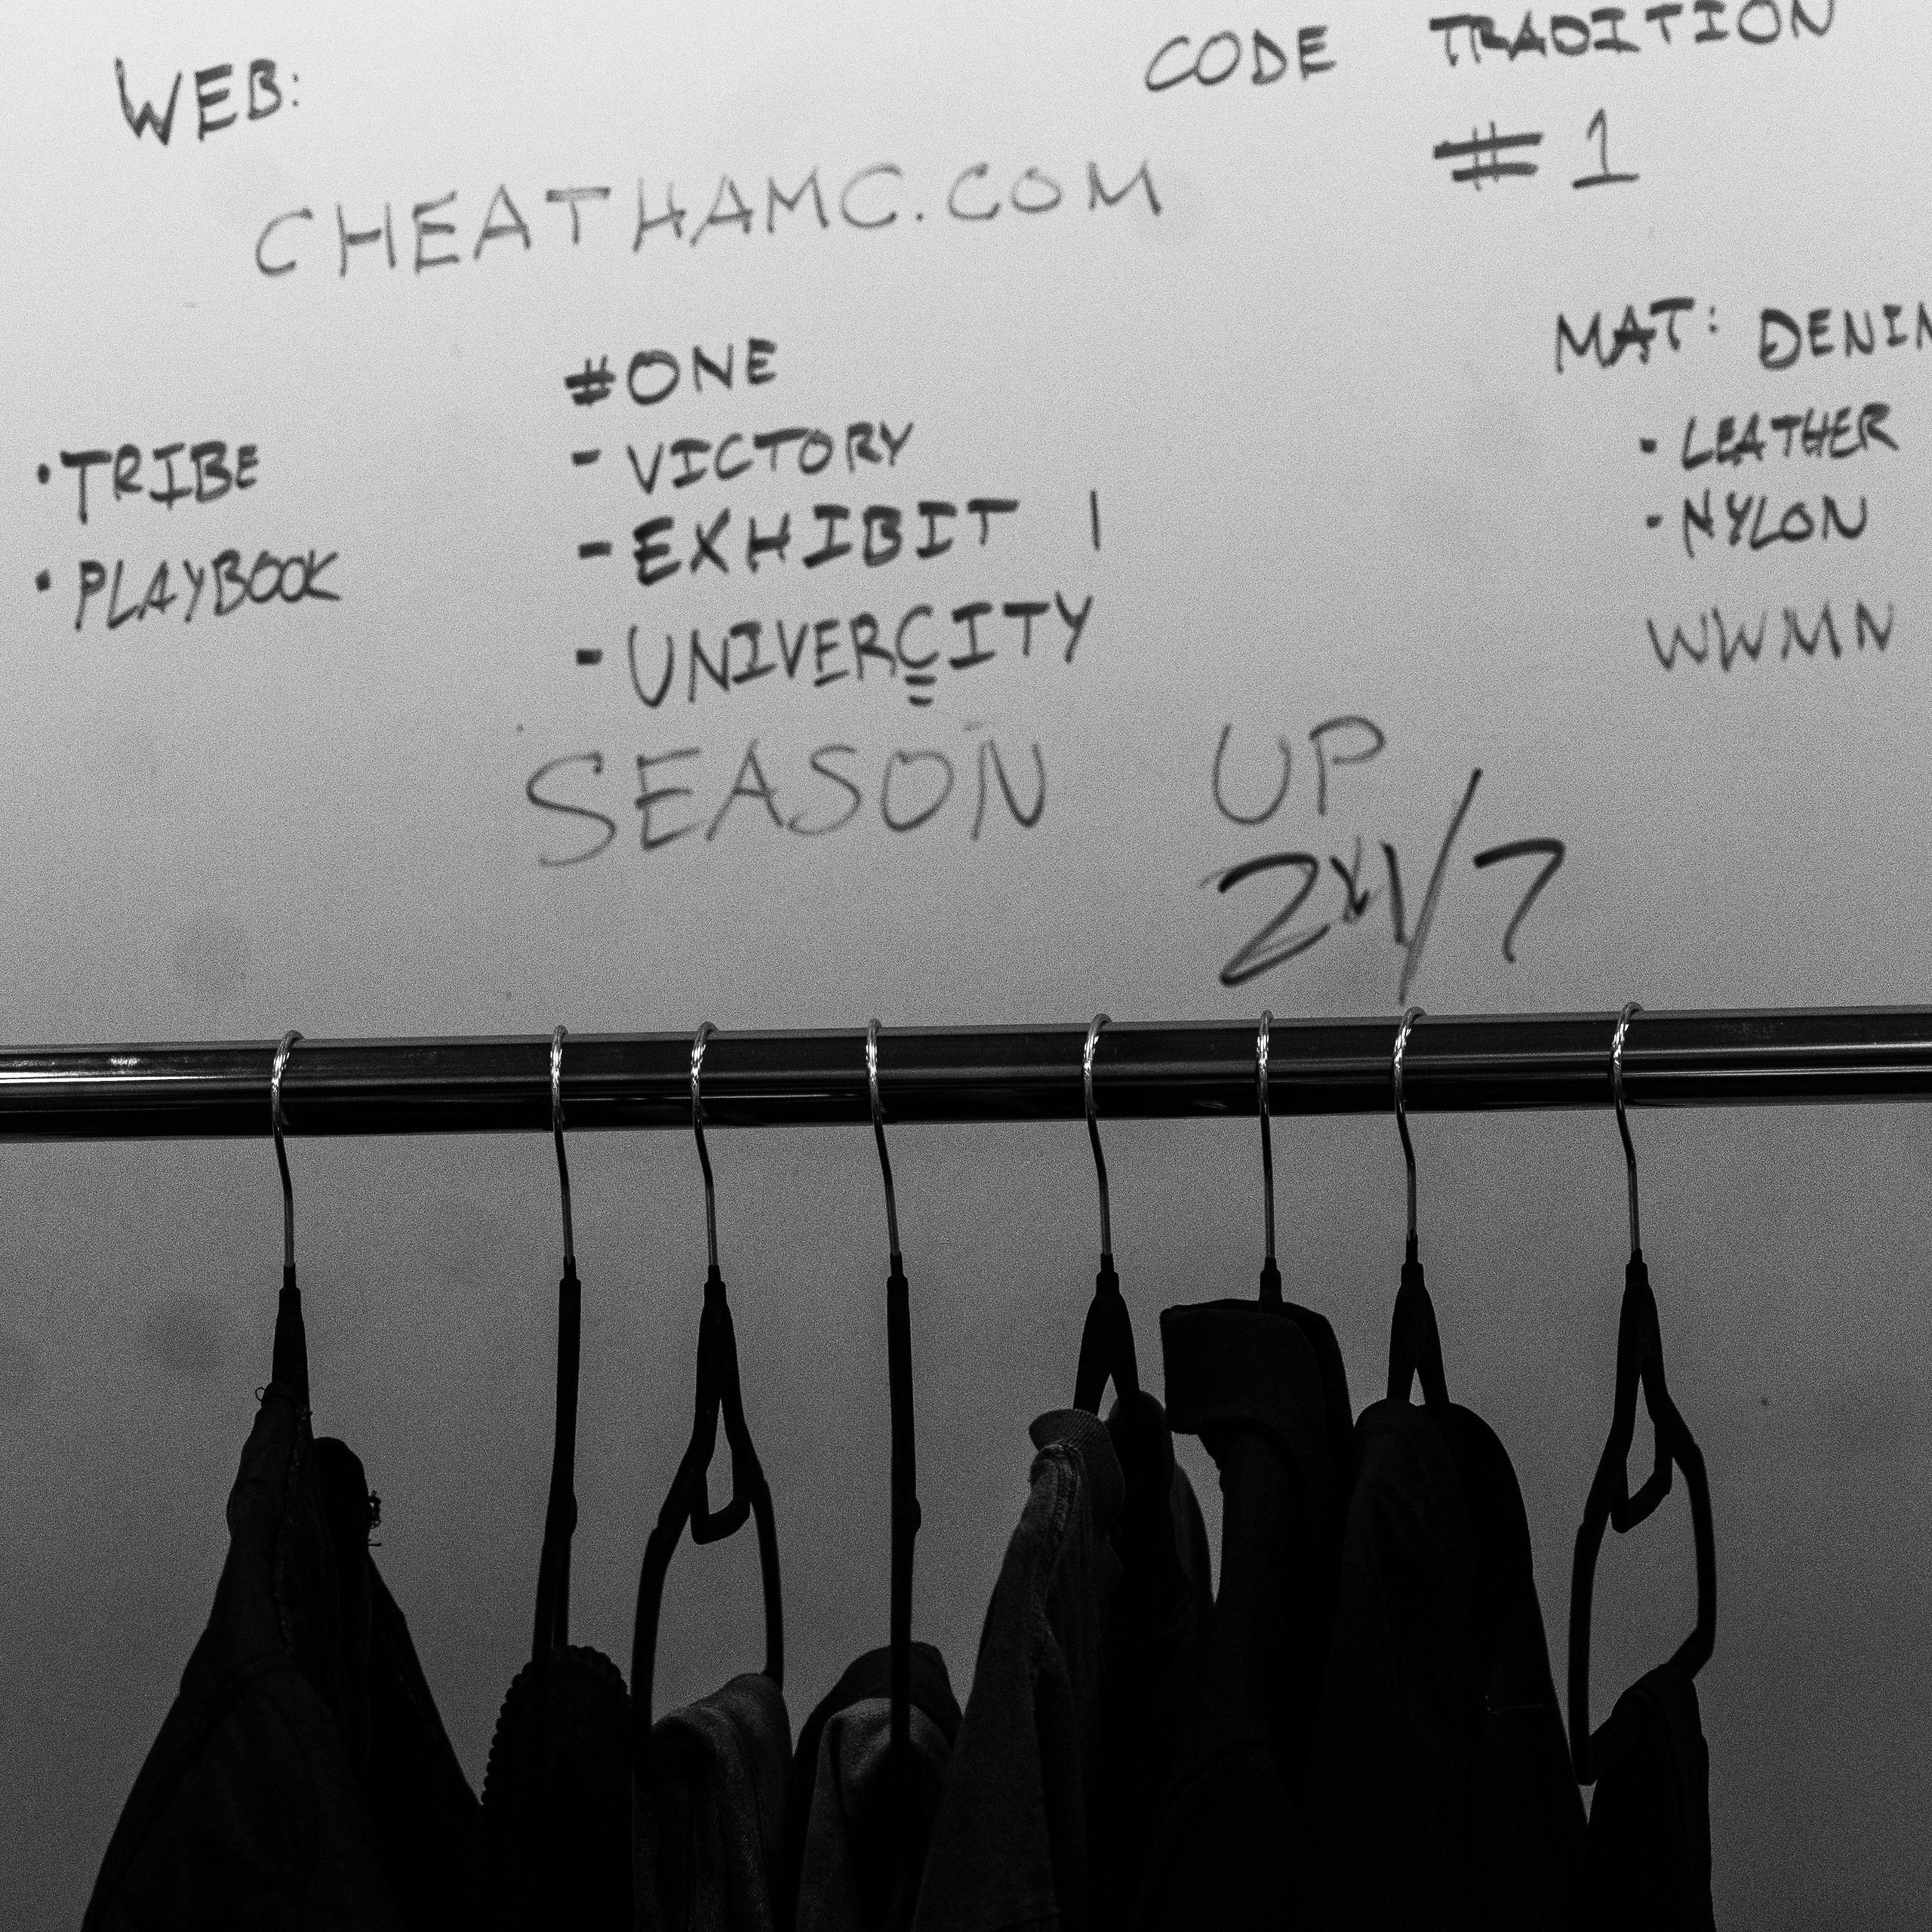 WEB:
CHEATHAMC.COM
CODE TRADITION
# 1
• TRIBE
• PLAYBOOK
#ONE
- VICTORY
- EXHIBIT 1
- UNIVERCITY
SEASON UP
24/7
MAT: DENIM
- LEATHER
- NYLON
WWMN